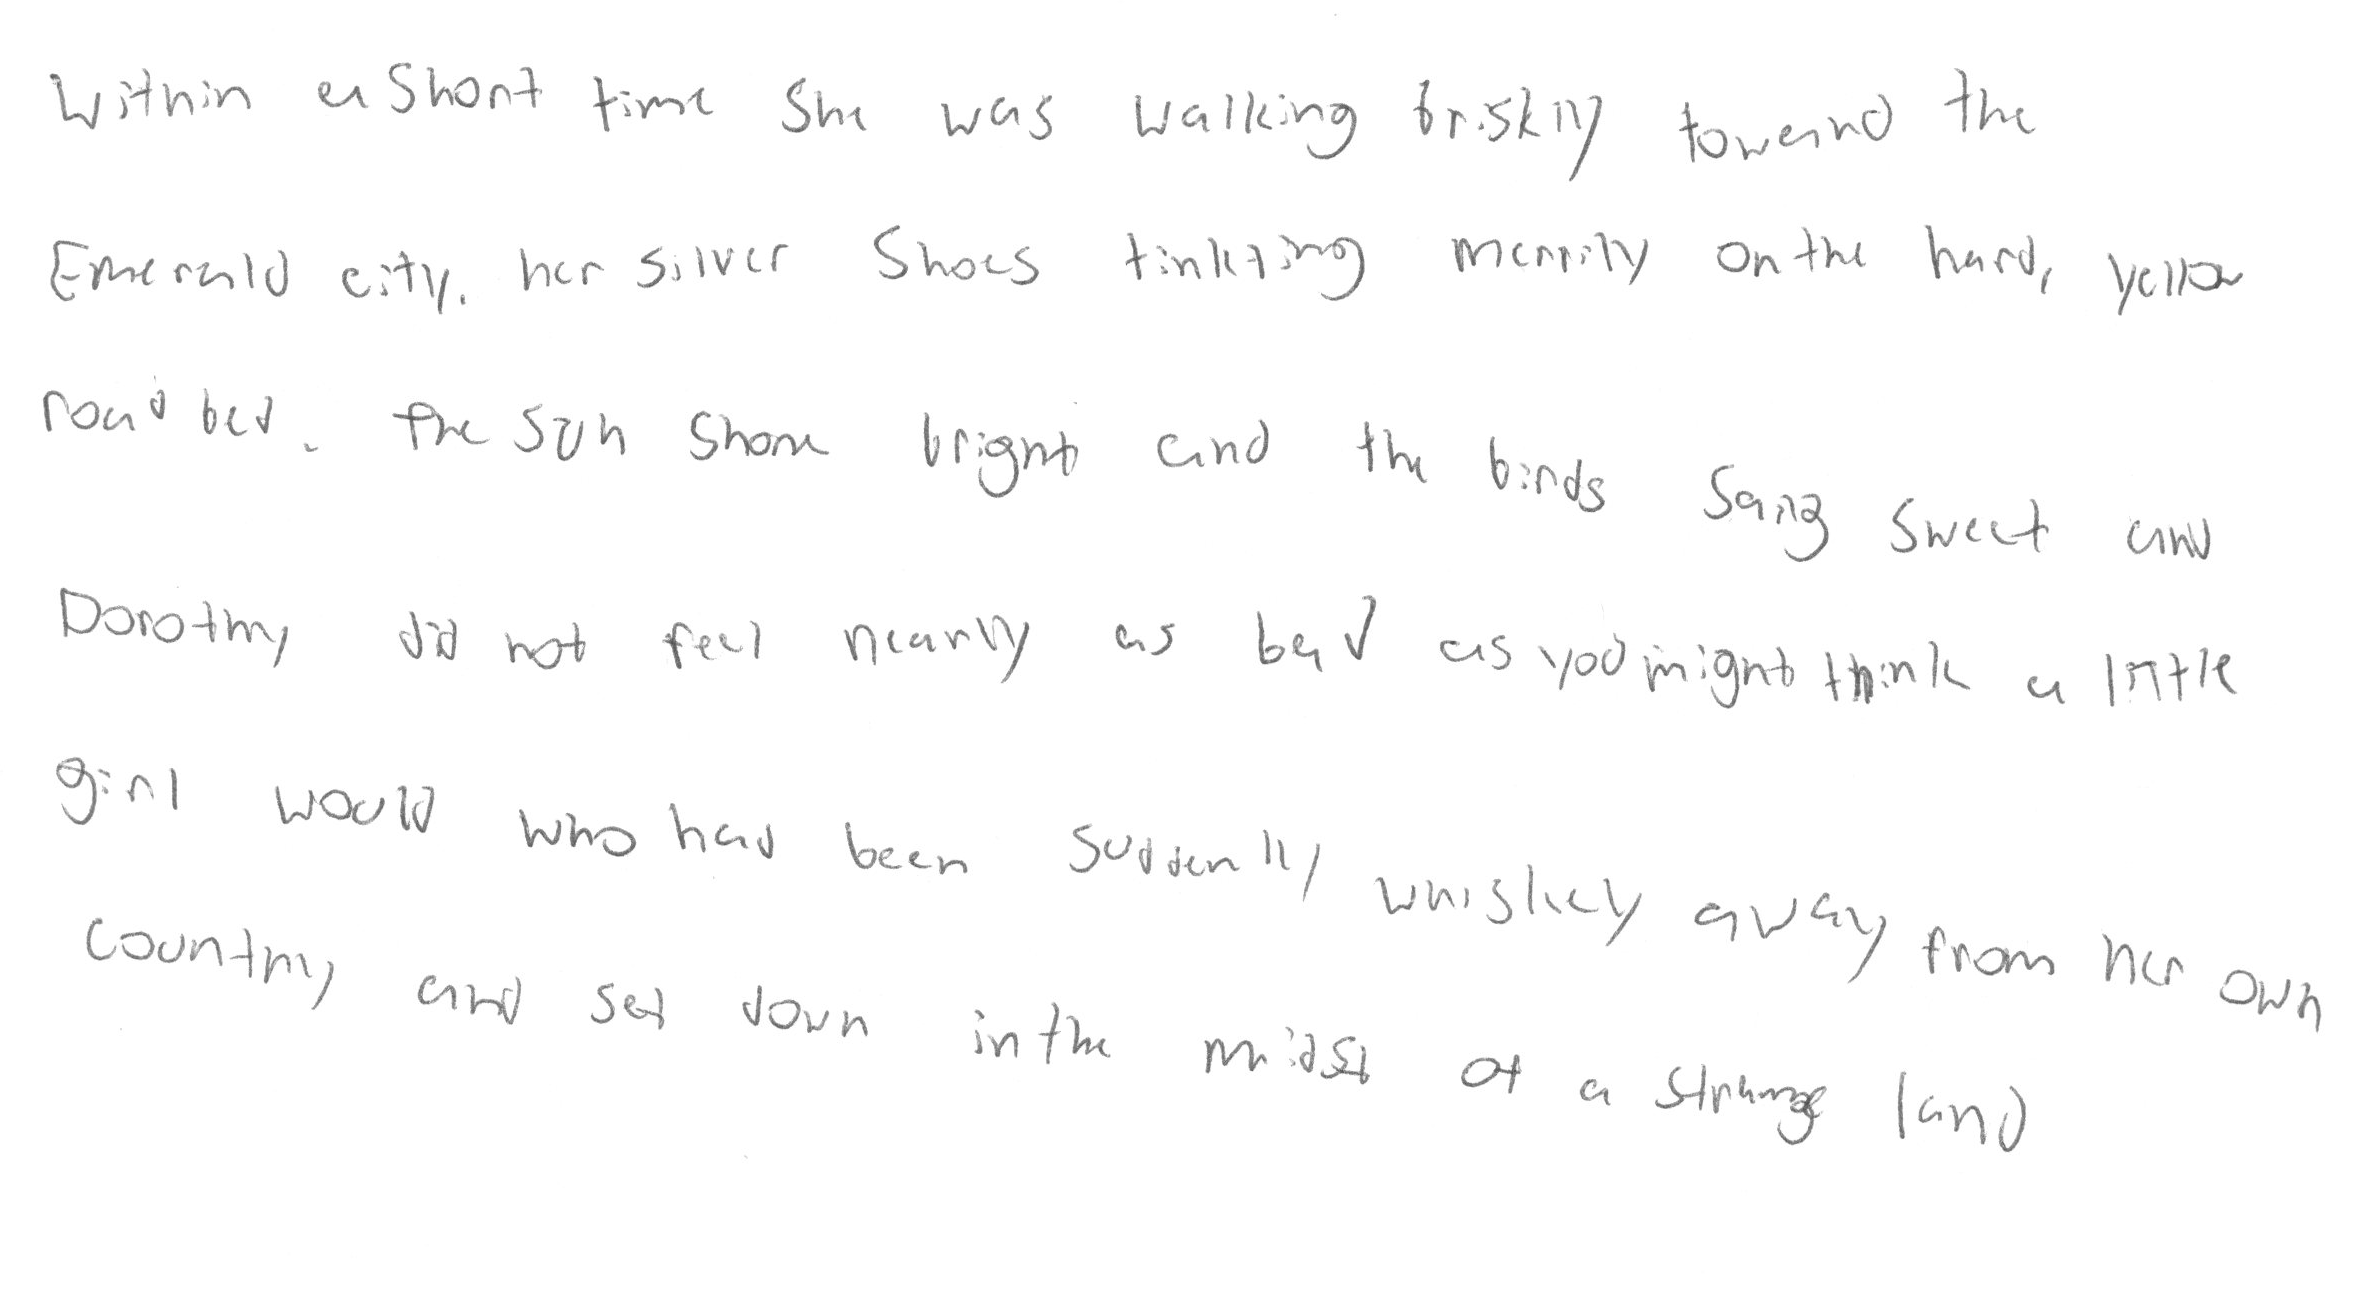 Within a short time she was walking briskly toward the
Emerald city, her silver shoes tinkling merrily on the hard, yellow
road bed. The sun shone bright and the birds sang sweet and
Dorothy did not feel nearly as bad as you might think a little
girl would who had been suddenly whiskey away from her own
country and set down in the midst of a strange land